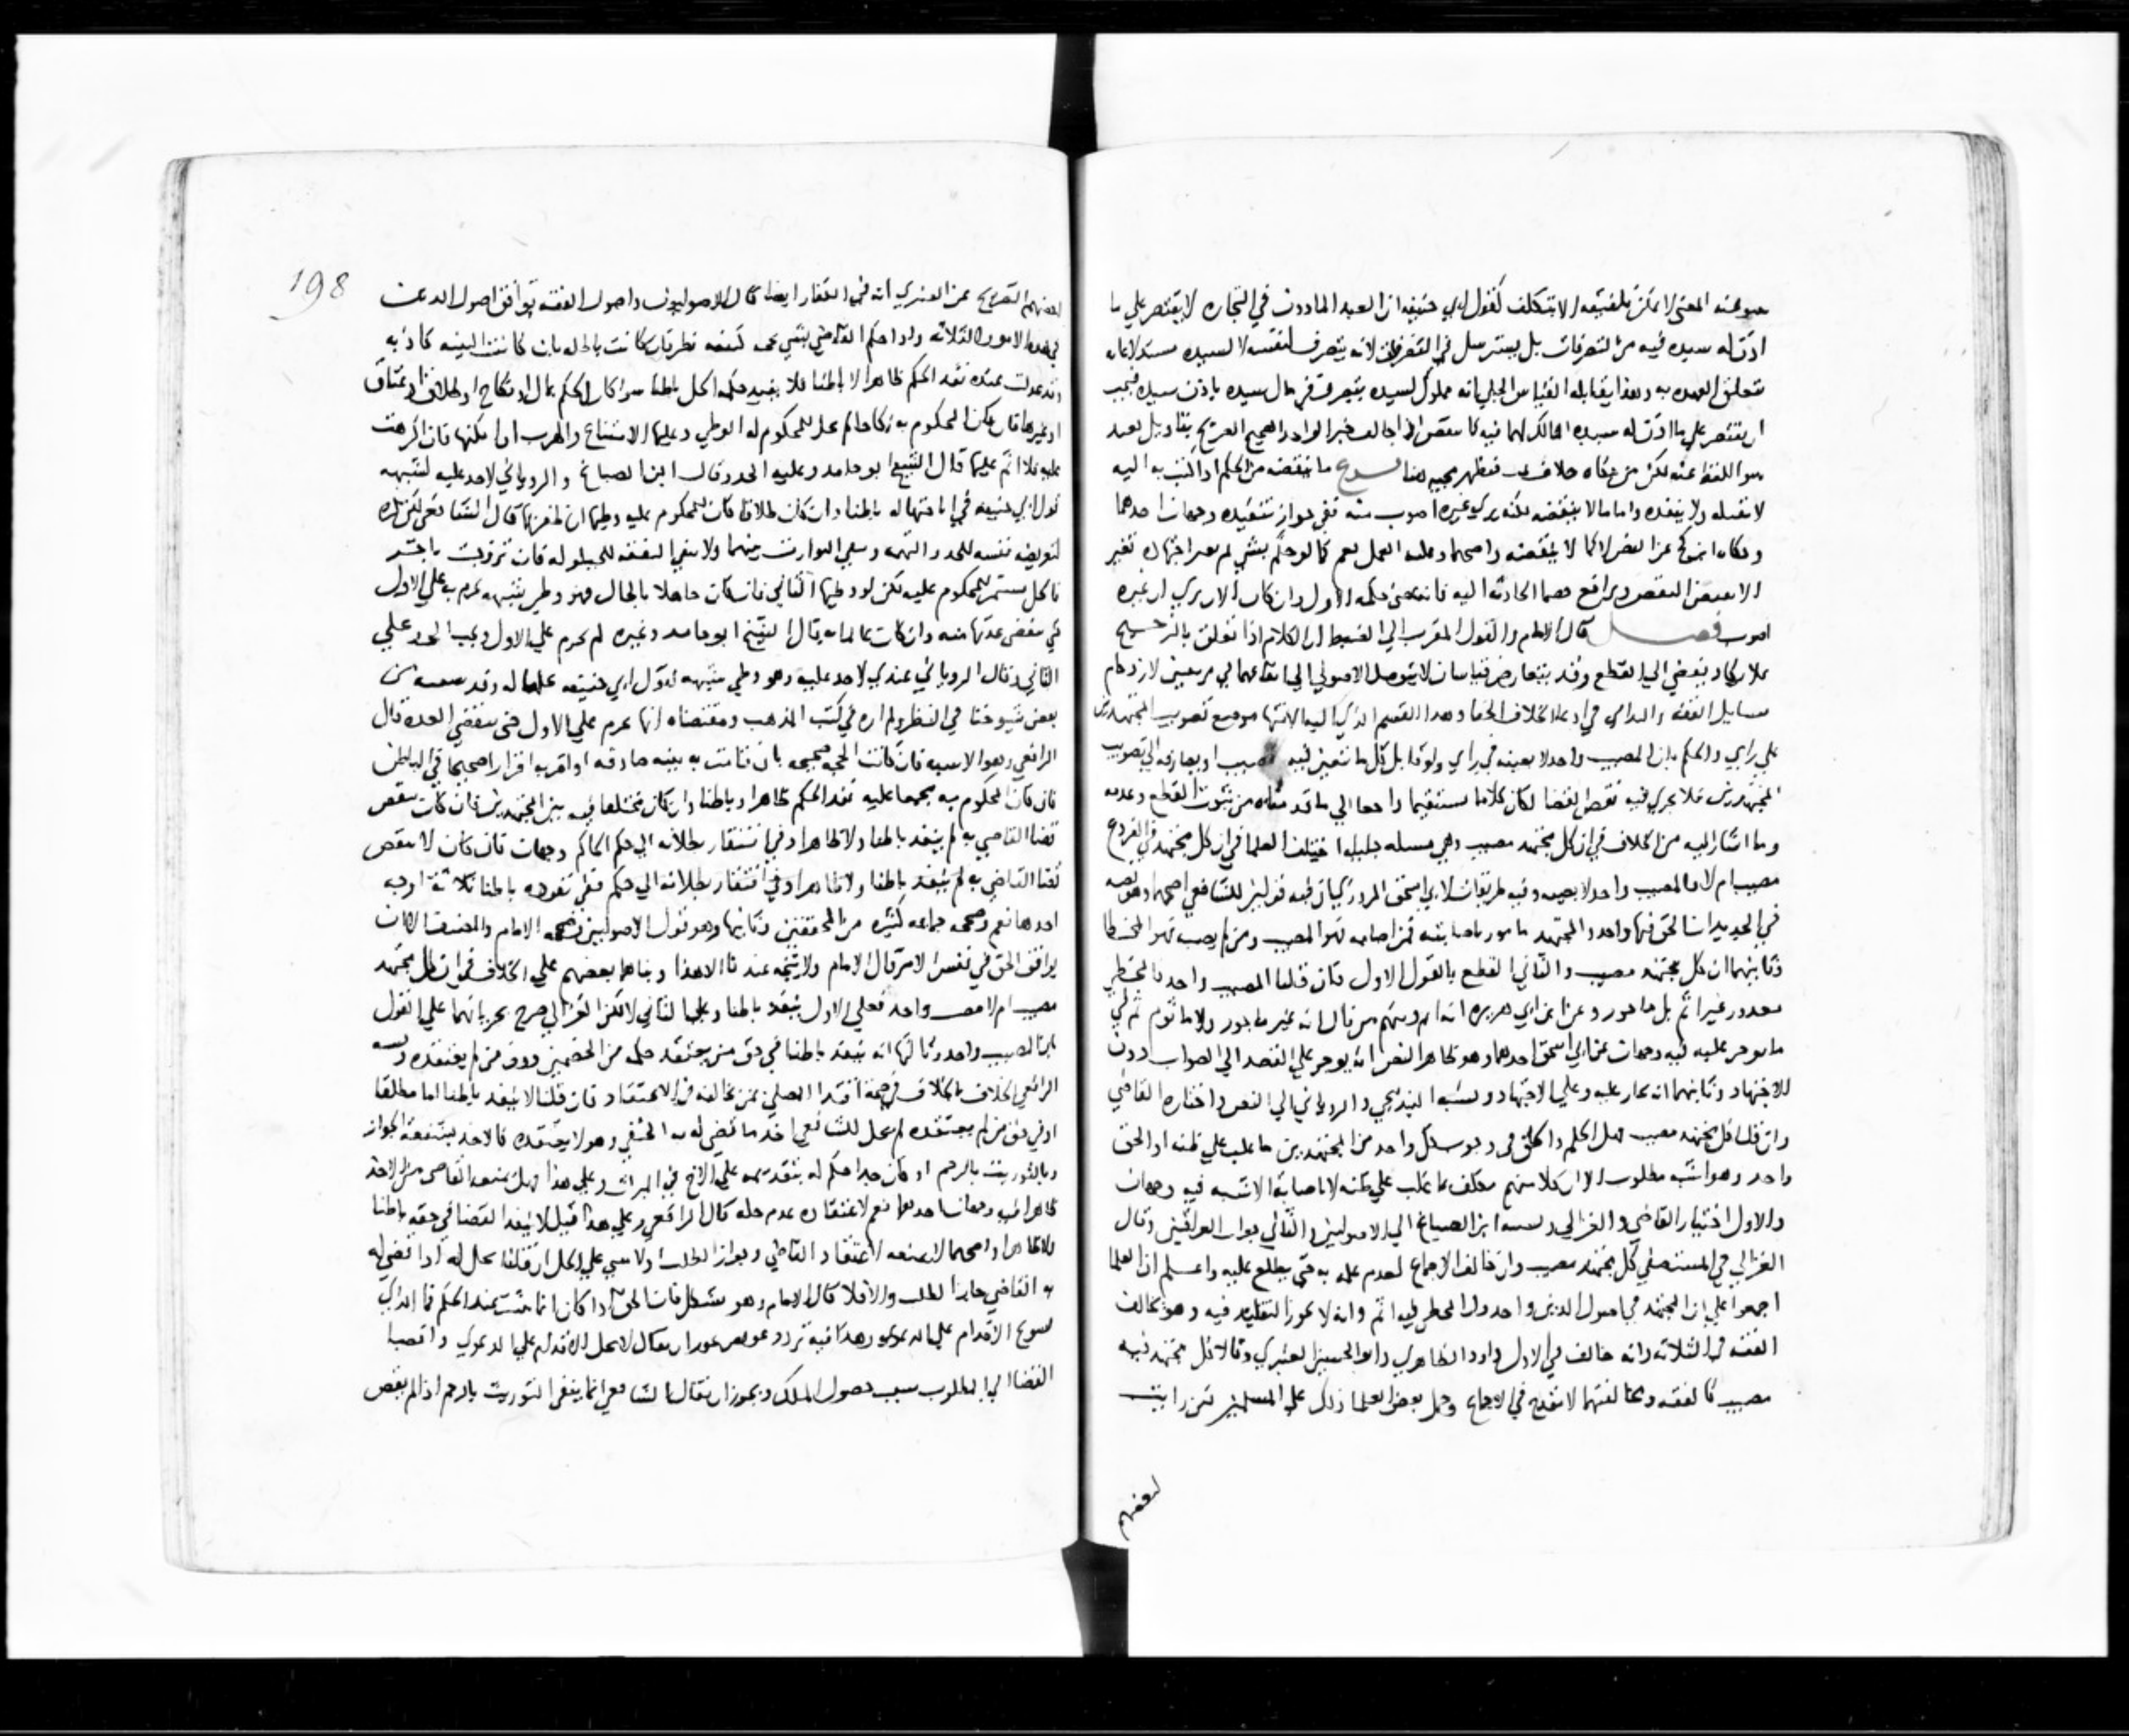 ينبو عنه المعنى لا يمكن تلفيقه الا بتكلف كقول ابي حنيفه ان العبد الماذون في التجاره لا يقتصر علي ما
اذن له سيده فيه من التصرفات بل يسترسل في التصرفات لانه يتصرف لنفسه لا لسيده مستدلا بانه
تتعلق العهده به وهذا يقابله القياس الجلي انه مملوك لسيده يتصرف في مال سيده باذن سيده فيجب
ان يقتصر علي ما اذن له سيده المالك لهما فيه كما ينقض اذا خالف خبر الواحد الصحيح الصريح بتاويل بعيد
ينبو اللفظ عنه لكن من حكاه خلاف فيظهر مجيه هنا فروع ما ينقضه من الحكم اذا كتب به اليه
لا يقبله ولا ينفذه واما ما لا ينقضه لكنه يري غيره اصوب منه ففي جواز تنفيذه وجهان احدهما
وحكاه ابن كج عن النص لا كما لا ينقضه واصحهما وعليه العمل نعم كما لو حكم بشي ثم تغير اجتهاده تغير
الا يقتضي النقض وترافع خصما الحادثه اليه فانه يمضي حكمه الاول وان كان الان يري ان غيره
اصوب فصل قال الامام والقول المقرب الي الضبط ان الكلام اذا تعلق بالترجيح
فلا يكاد يفضي الي القطع وقد يتعارض قياسان لا يتوصل الاصولي الي ايقاعهما في مرتبتين لازدحام
مسايل الفقه والتداني في ادعا الخلاف الخفا وهذا القسم الذي اليه الانتها موضع تصويب المجتهدين
علي رايي والحكم بان المصيب واحد لا بعينه في راي ولو قابل كل ما نتعين فيه مصيب او يعارفه الي تصويب
المجتهدين فلا يجري فيه نقض القضا لكان كلاما مستقيما راجعا الي ما قد مناه من ثبوت القطع وعدمه
وما اشار اليه من الخلاف في ان كل مجتهد مصيب وهي مسله جليله اختلف العلما في ان كل مجتهد في الفروع
مصيب ام لا والمصيب واحد لا بعينه وفيه طريقان لابي اسحق المروزي ان فيه قولين للشافعي اصحهما وهو نصه
في الجديد ان الحق فيها واحد والمجتهد مامور باصابته فمن اصابه فهو المصيب ومن لم يصب فهو المخطا
وثانيهما ان كل مجتهد مصيب والثاني القطع بالقول الاول فان قلنا المصيب واحد فالمخطي
معذور غير اثم بل ماجور وعن ابن ابي هريره انه اثم ومنهم من قال انه غير ماجور ولا ماثوم ثم في
ما يوجر عليه فيه وجهان عن ابي اسحق احدهما وهو ظاهر النص انه يوجر علي القصد الي الصواب دون
الاجتهاد وثانيهما انه يجار عليه وعلي الاجتهاد ونسبه البندنيجي والروياني الي النص واختاره القاضي
وان قلنا كل مجتهد مصيب فهل الحكم والحق في وجوب كل واحد من المجتهدين ما غلب علي ظنه او الحق
واحد وهو اشبه مطلوب الا ان كلا منهم مكلف بما غلب علي ظنه لا باصابة الاشبه فيه وجهان
والاول اختيار القاضي والغزالي ونسبه ابن الصباغ الي الاصوليين والثاني جواب العراقيين وقال
الغزالي في المستصفي كل مجتهد مصيب وان خالف الاجماع لعدم علمه به حتي يطلع عليه واعلم ان العلما
اجمعوا علي ان المجتهد في اصول الدين واحد وان المخطي فيه اثم وانه لا يجوز التقليد فيه وهو يخالف
الفقه في الثلاثه وانه خالف في الاول داود الظاهري وابو الحسين العنبري وقالا كل مجتهد فيه
مصيب كالفقه ومخالفتهما لا تقدح في الاجماع وحمل بعض العلما ذلك علي المسلمين لكن رايت
لبعضهم
198
لبعضهم التصريح عن العنبري انه في الكفار ايضا قال الاصوليون واصول الفقه يوافق اصول الدين
في هذه الامور الثلاثه ولو حكم القاضي بشي بحجه لنفسه نظر فان كانت باطله بان كانت البينه كاذبه
وقد عدلت عنده نفذ الحكم ظاهرا لا باطنا فلا يفيد حكمه الحل باطنا سوا كان الحكم بمال او نكاح او طلاق او عتاق
او غيرها فان كان المحكوم به نكاحا لم يحل للمحكوم له الوطي وعليها الامتناع والهرب ان امكنها فان اكرهت
عليه فلا اثم عليها قال الشيخ ابو حامد وعليه الحد وقال ابن الصباغ والروياني لا حد عليه لشبهه
قول ابي حنيفه في اباحتها له باطنا وان كان طلاقا كان للمحكوم عليه وطيها ان ظفر بها قال الشافعي لكن يكره
لتعريضه نفسه للحد والتهمه ويبقي التوارث بينهما ولا تبقي النفقه للحيلوله فان تزوجت باخر
فالحل مستمر للمحكوم عليه لكن لو وطيها الثاني فان كان جاهلا بالحال فهو وطي شبهه تحرم به علي الاول
حتي تنقضي عدتها منه وان كان عالما به قال الشيخ ابو حامد وغيره لم تحرم علي الاول ويجب الحد علي
الثاني وقال الروياني عندي لا حد عليه وهو وطي شبهه لقول ابي حنيفه بحلها له وقد سمعه من
بعض شيوخنا في النظر ولم اره في كتب المذهب ومقتضاه انها تحرم علي الاول حتي تنقضي العده قال
الرافعي وهو الاشبه فان كانت الحجه صحيحه بان قامت به بينه صادقه او اقر به اقرارا صحيحا في الباطن
فان كان المحكوم به مجمعا عليه نفذ الحكم ظاهرا وباطنا وان كان مختلفا فيه بين المجتهدين فان كان ينقض
قضا القاضي به لم ينفذ باطنا ولا ظاهرا وفي افتقار بطلانه الي حكم الحاكم وجهان فان كان لا ينقض
قضا القاضي به لم ينفذ باطنا ولا ظاهرا وفي افتقار بطلانه الي حكم ففي نفوذه باطنا ثلاثة اوجه
احدها نعم وصححه جماعه كثيره من المحققين وثانيها وهو قول الاصوليين وصححه الامام والمصنف الا ان
يوافق الحق في نفس الامر قال الامام ولا يتجه عندنا الا هذا وبناهما بعضهم علي الخلاف في ان كل مجتهد
مصيب ام لا والمصيب واحد فعلي الاول ينفذ باطنا وعلي الثاني لا لكن الغزالي صرح بجريانهما علي القول
بان المصيب واحد وثالثها انه ينفذ باطنا في حق من يعتقد حله من الخصمين دون من لم يعتقده ونسبه
الرافعي الخلاف بالخلاف في صحة اقتدا المصلي بمن يخالفه في الاعتقاد فان قلنا لا ينفذ باطنا اما مطلقا
او في حق من لم يعتقده لم يحل للشافعي اخذ ما قضي له به الحنفي وهو لا يعتقده كالاخذ بشفعة الجوار
وبالتوريث بالرحم او كان جدا حكم له بتقديمه علي الاخ في الميراث وعلي هذا فهل يمنعه القاضي من الاخذ
ظاهرا فيه وجهان احدهما نعم لاعتقاده عدم حله قال الرافعي وعلي هذا قيل لا ينفذ القضا في حقه باطنا
ولا ظاهرا واصحهما لا يمنعه لاعتقاد القاضي وجواز الطلب ولا مبني علي الحل ان قلنا يحل له اذا قضي له
به القاضي جاز الطلب والا فلا قال الامام وهو مشكل فان الحق اذا كان انما يثبت عند الحكم فما الذي
يسوغ الاقدام علي الدعوي وهذا فيه تردد يجوز ان يقال لا يحل الاقدام علي الدعوي واقتضا
القضا الي المطلوب سبب حصول الملك ويجوز ان يقال الشافعي انما ينفي التوريث بالرحم اذا لم يقض